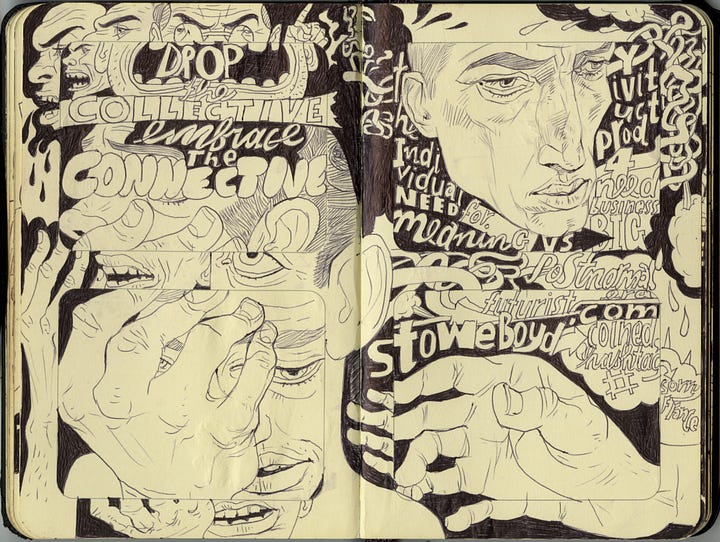 DROP
the
COLLECTIVE
embrace
The
CONNECTIVE
t
he
Indi
vidual
NEED for
meaning VS
Y
ivit
uct
prod
4
need
business
BIG
Postnormal
era
futurist
stoweboyd.com
coined
hashtag
#
France